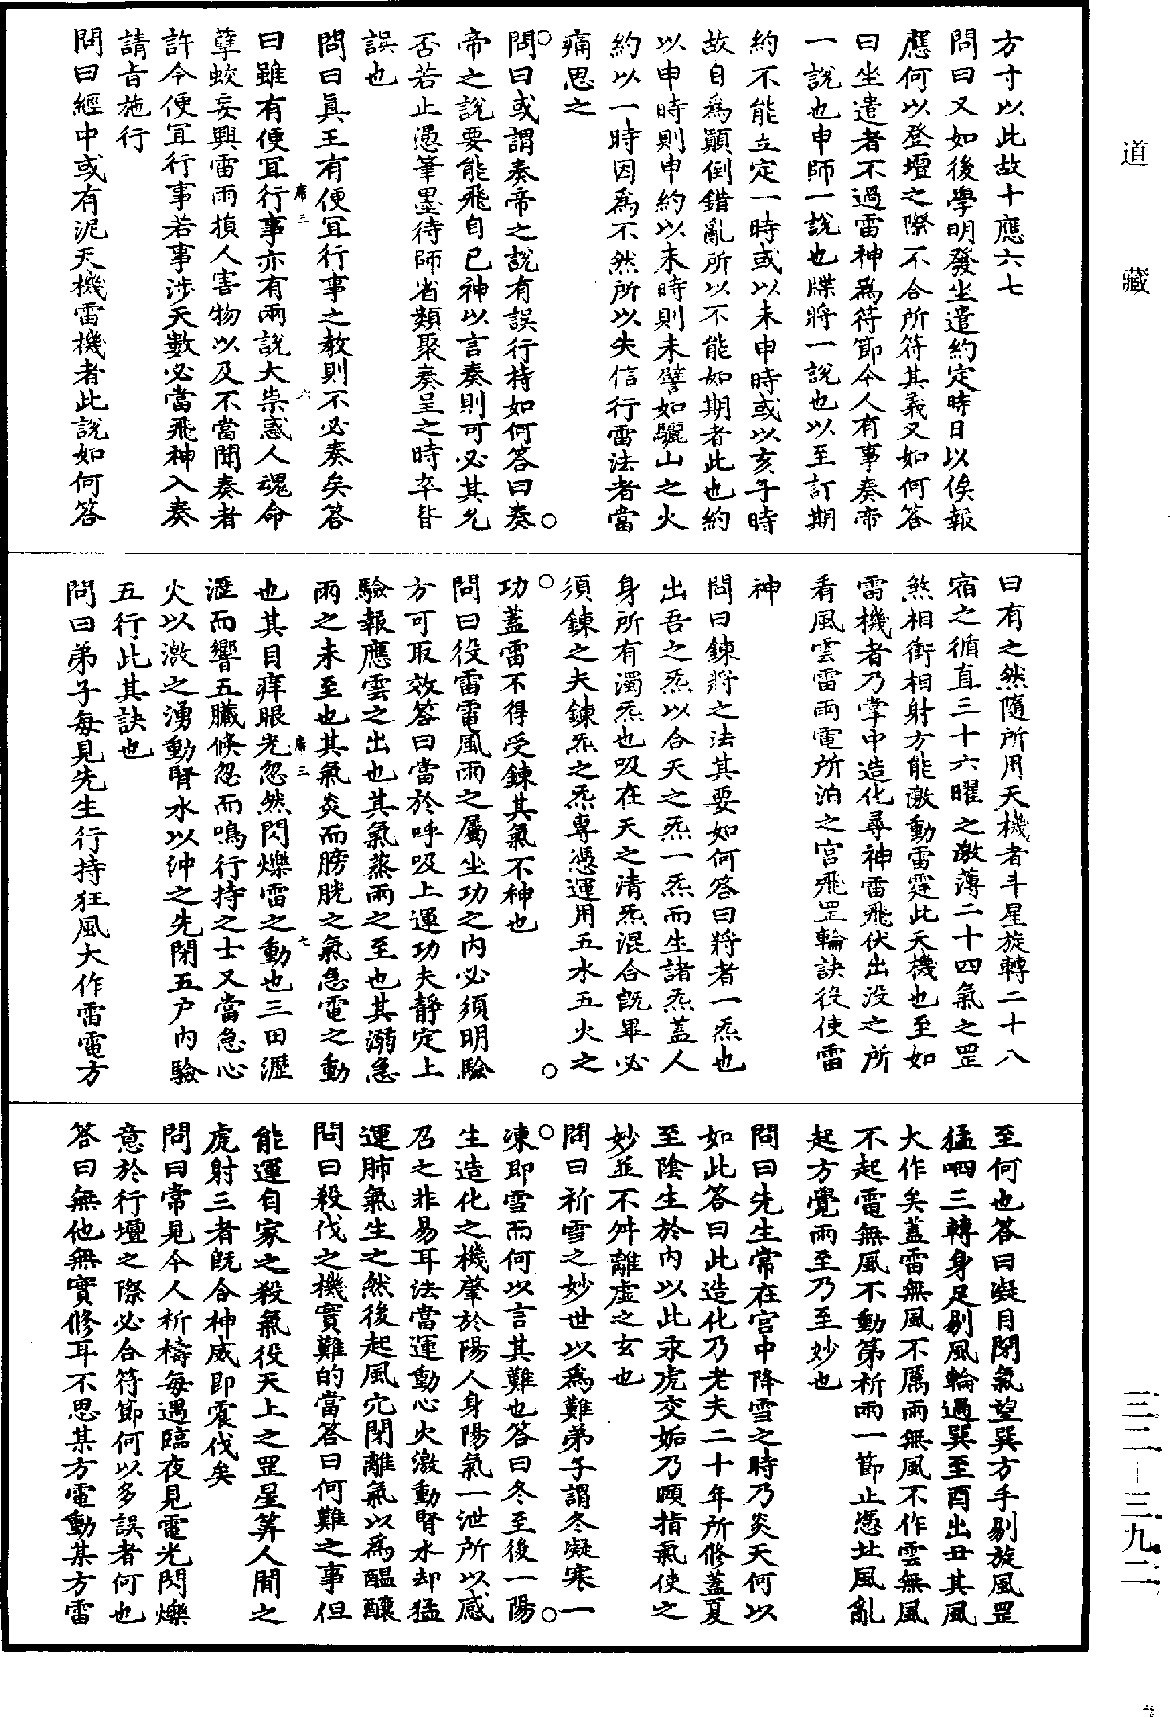 道藏
方寸以此故十應六七
問曰又如後學明發坐遣約定時日以俟報
應何以登壇之際不合所符其義又如何答
曰坐遣者不過雷神為符節今人有事奏帝
一說也申師一說也牒將一說也以至訂期
約不能立定一時或以未申時或以亥子時
故自為顚倒錯亂所以不能如期者此也約
以申時則申約以未時則未譬如驪山之火
約以一時因為不然所以失信行雷法者當
痛思之
問曰或謂奏帝之說有誤行持如何答曰奏
帝之說要能飛自己神以言奏則可必其允
否若止憑筆墨待師省類聚奏呈之時卒皆
誤也
問曰眞王有便宜行事之教則不必奏矣答
曰雖有便宜行事亦有兩說大祟惑人魂命
孽蛟妄興雷雨損人害物以及不當聞奏者
許令便宜行事若事涉天數必當飛神入奏
請旨施行
問曰經中或有泥天機雷機者此說如何答
席三
六
曰有之然隨所用天機者斗星旋轉二十八
宿之循直三十六曜之激薄二十四氣之罡
煞相衝相射方能激動雷霆此天機也至如
雷機者乃掌中造化尋神雷飛伏出没之所
看風雲雷雨電所泊之宮飛罡輪訣役使雷
神
問曰鍊將之法其要如何答曰將者一炁也
出吾之炁以合天之炁一炁而生諸炁蓋人
身所有濁炁也吸在天之清炁混合旣畢必
須鍊之夫鍊炁之炁專憑運用五水五火之
功蓋雷不得受鍊其氣不神也
問曰役雷電風雨之屬坐功之内必須明驗
方可取效答曰當於呼吸上運功夫靜定上
驗報應雲之出也其氣蒸雨之至也其溺急
雨之未至也其氣炎而膀胱之氣急電之動
也其目痒眼光忽然閃爍雷之動也三田瀝
瀝而響五臟倏忽而鳴行持之士又當急心
火以激之湧動腎水以沖之先閉五户内驗
五行此其訣也
問曰弟子每見先生行持狂風大作雷電方
席三
七
至何也答曰凝目閉氣望巽方手剔旋風罡
猛呬三轉身足剔風輪過巽至酉出丑其風
大作矣蓋雷無風不厲雨無風不作雲無風
不起電無風不動第祈雨一節止憑坎風亂
起方覺雨至乃至妙也
問曰先生常在宮中降雪之時乃炎天何以
如此答曰此造化乃老夫二十年所修蓋夏
至陰生於内以此汞虎交姤乃頤指氣使之
妙並不舛離虛之玄也
問曰祈雪之妙世以為難弟子謂冬凝寒一
凍即雪而何以言其難也答曰冬至後一陽
生造化之機肇於陽人身陽氣一泄所以感
召之非易耳法當運動心火激動腎水却猛
運肺氣生之然後起風穴閉離氣以為醖釀
問曰殺伐之機實難的當答曰何難之事但
能運自家之殺氣役天上之罡星筭人間之
虎射三者旣合神威即震伐矣
問曰常見今人祈禱每遇臨夜見電光閃爍
意於行壇之際必合符節何以多誤者何也
答曰無他無實修耳不思某方電動某方雷
三二—三九二